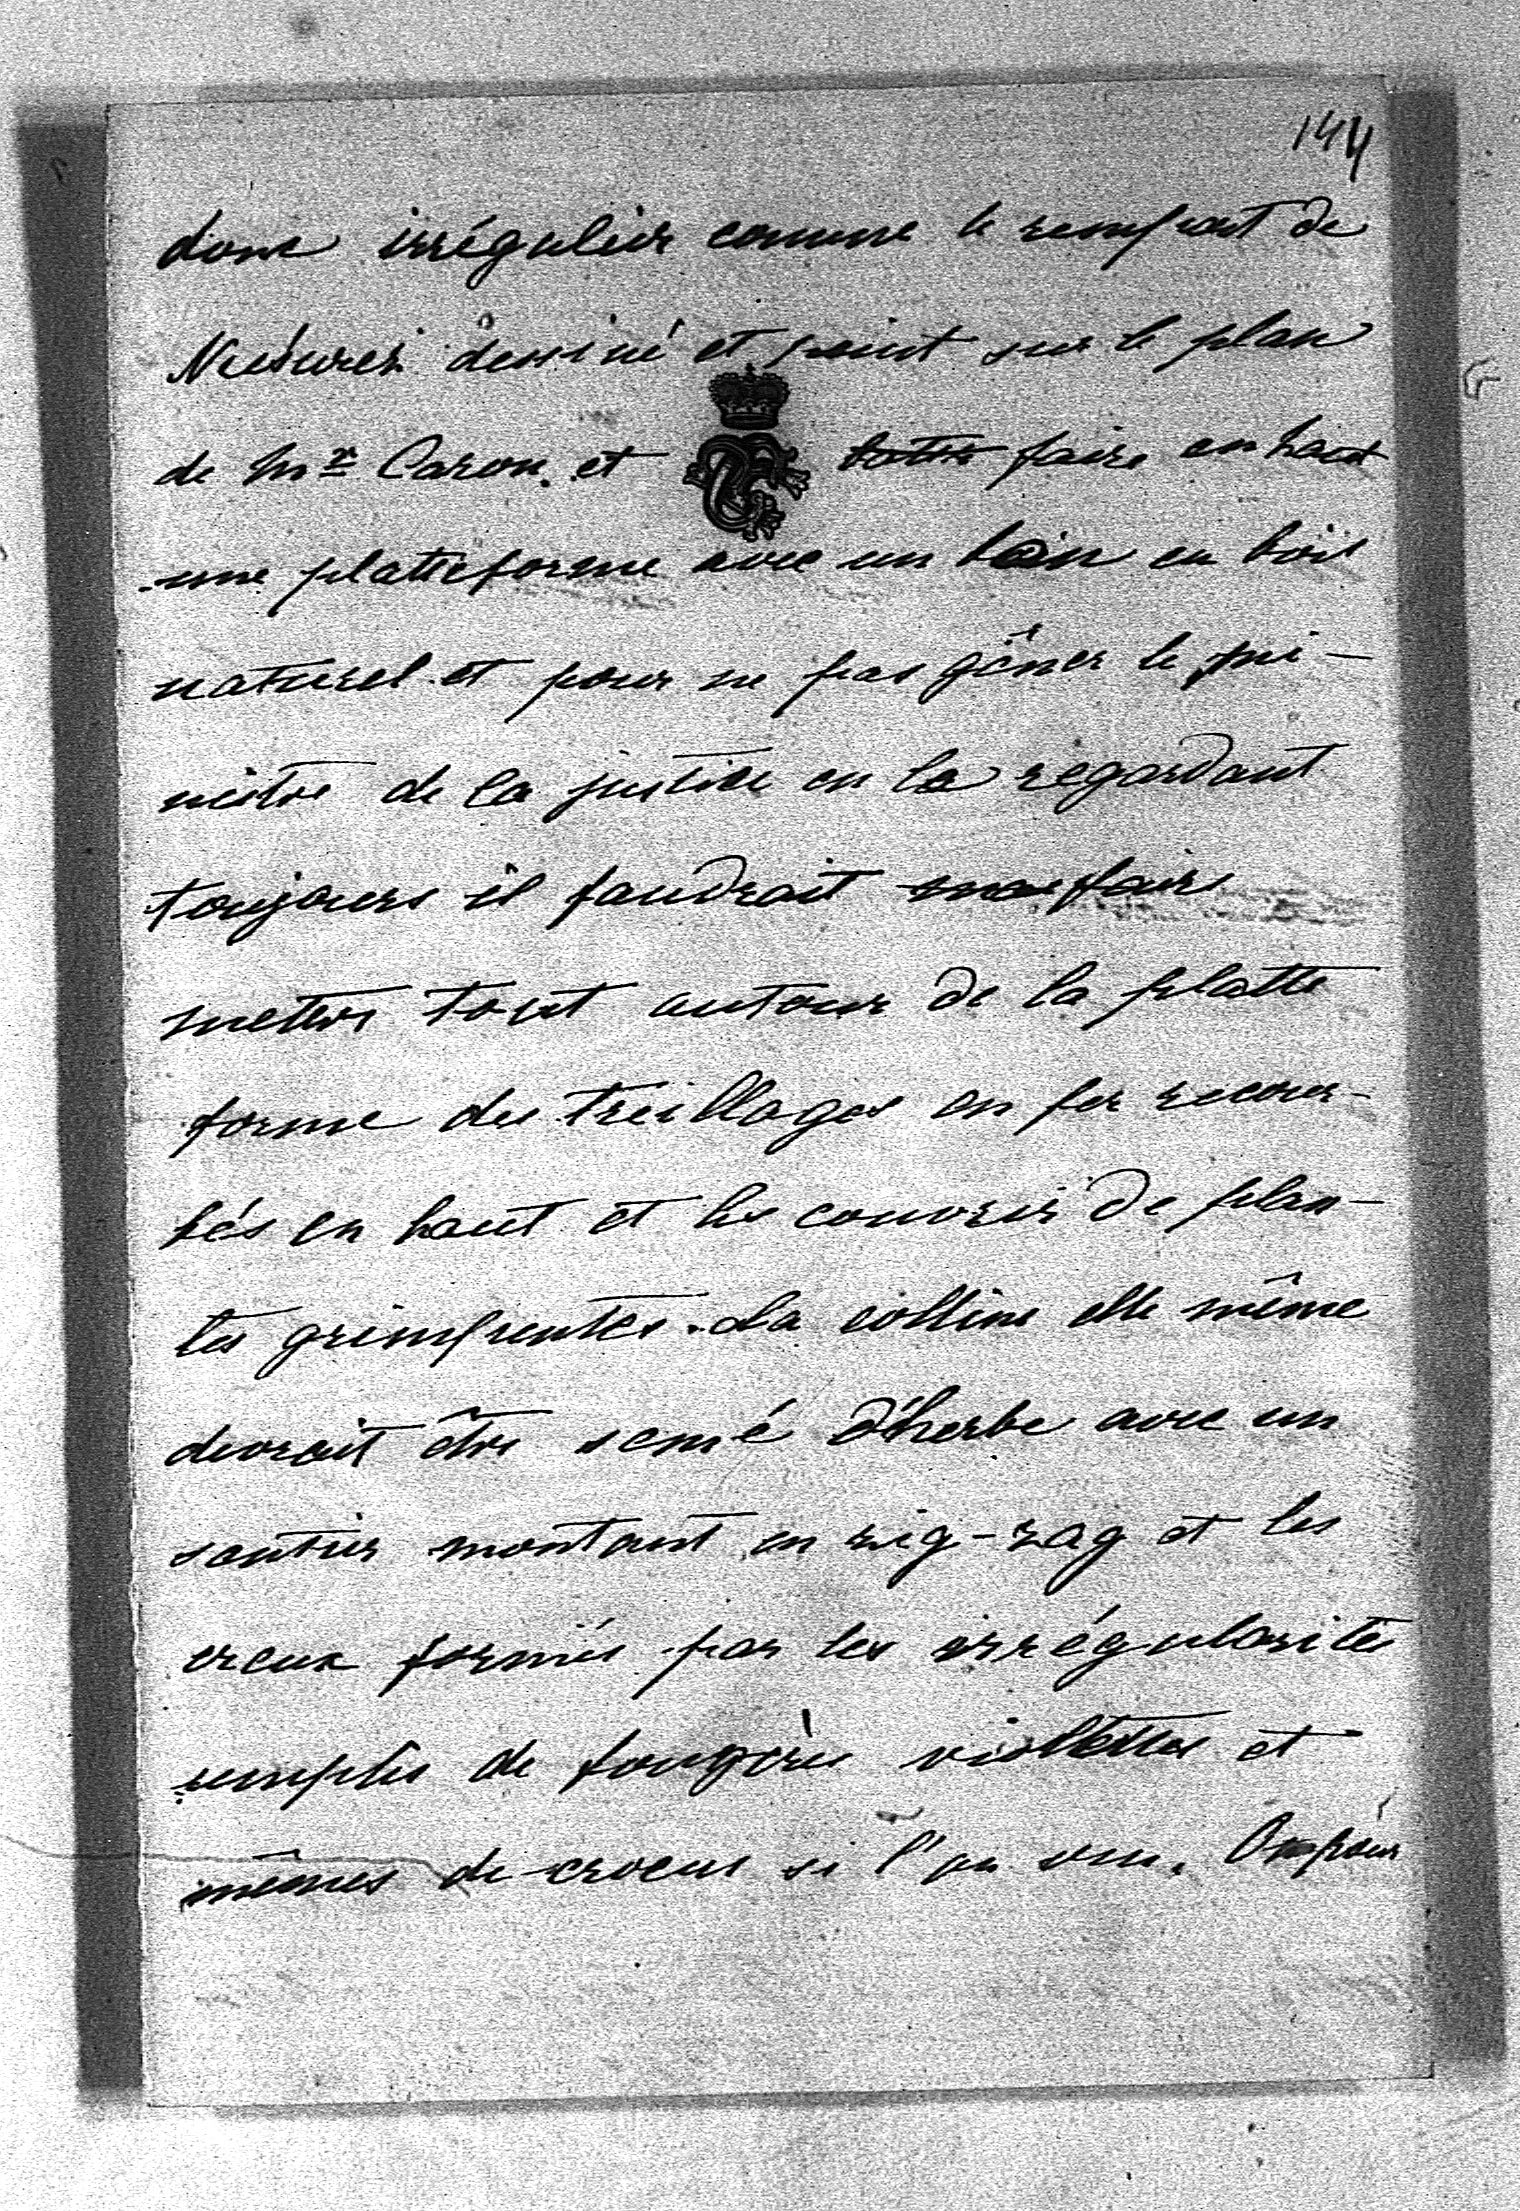 144
donc irrégulier comme le rempart de
dessiné et peint sur le plan
de Mr Caron. et faire en haut
une platteforme avec un banc en bois
naturel et pour ne pas gêner le mi-
nistre de la justice en la regardant
toujours il faudrait faire
mettre tout autour de la platte
forme des treillages en fer recour-
bés en haut et les couvrir de plan-
tes grimpentes. La colline elle même
devrait être semé d'herbe avec un
sentier montant en zig-zag et les
creux formés par les irrégularités
remplis de fougères violettes et
mêmes de crocus si l'on veu.